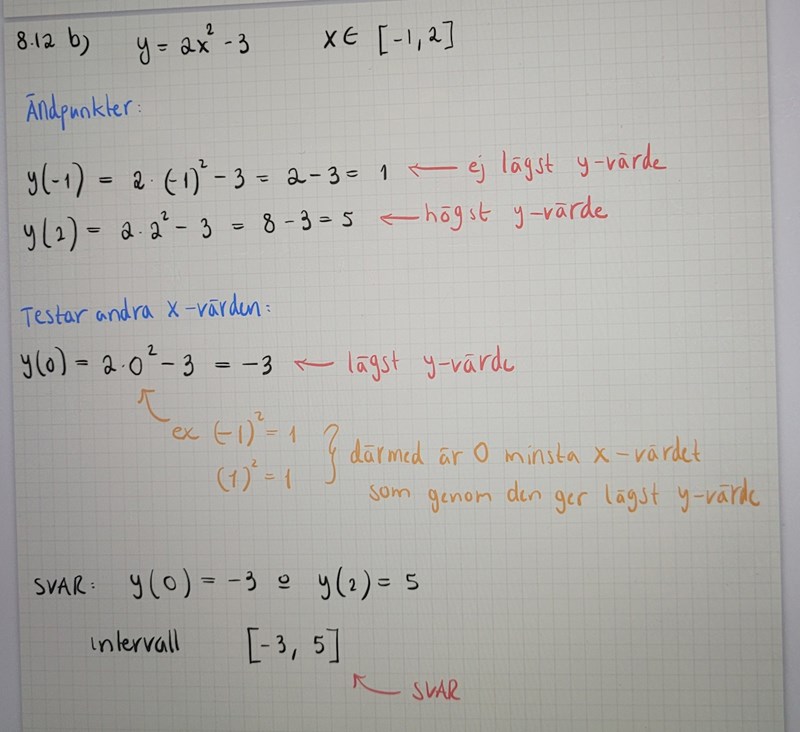 8.12 b) y = 2x² - 3 x ∈ [-1, 2]
Ändpunkter:
y(-1) = 2·(-1)² - 3 = 2 - 3 = 1 ← ej lägst y-värde
y(2) = 2·2² - 3 = 8 - 3 = 5 ← högst y-värde
Testar andra x-värden:
y(0) = 2·0² - 3 = -3 ← lägst y-värde
ex (-1)² = 1
(1)² = 1
} därmed är 0 minsta x-värdet
som genom den ger lägst y-värde
SVAR: y(0) = -3 o y(2) = 5
intervall [-3, 5]
← SVAR